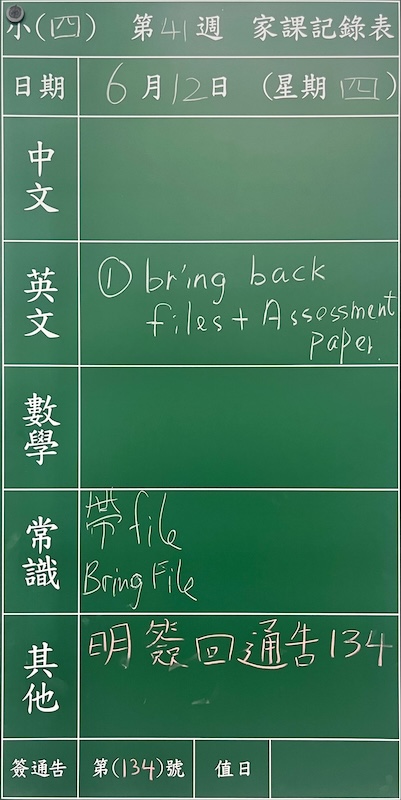 小(四) 第41週 家課記錄表
日期 6月12日 (星期四)
中文
英文
① bring back
files + Assessment
paper.
數學
常識
帶file
Bring File
其他
明簽回通告134
簽通告 第(134)號 值日